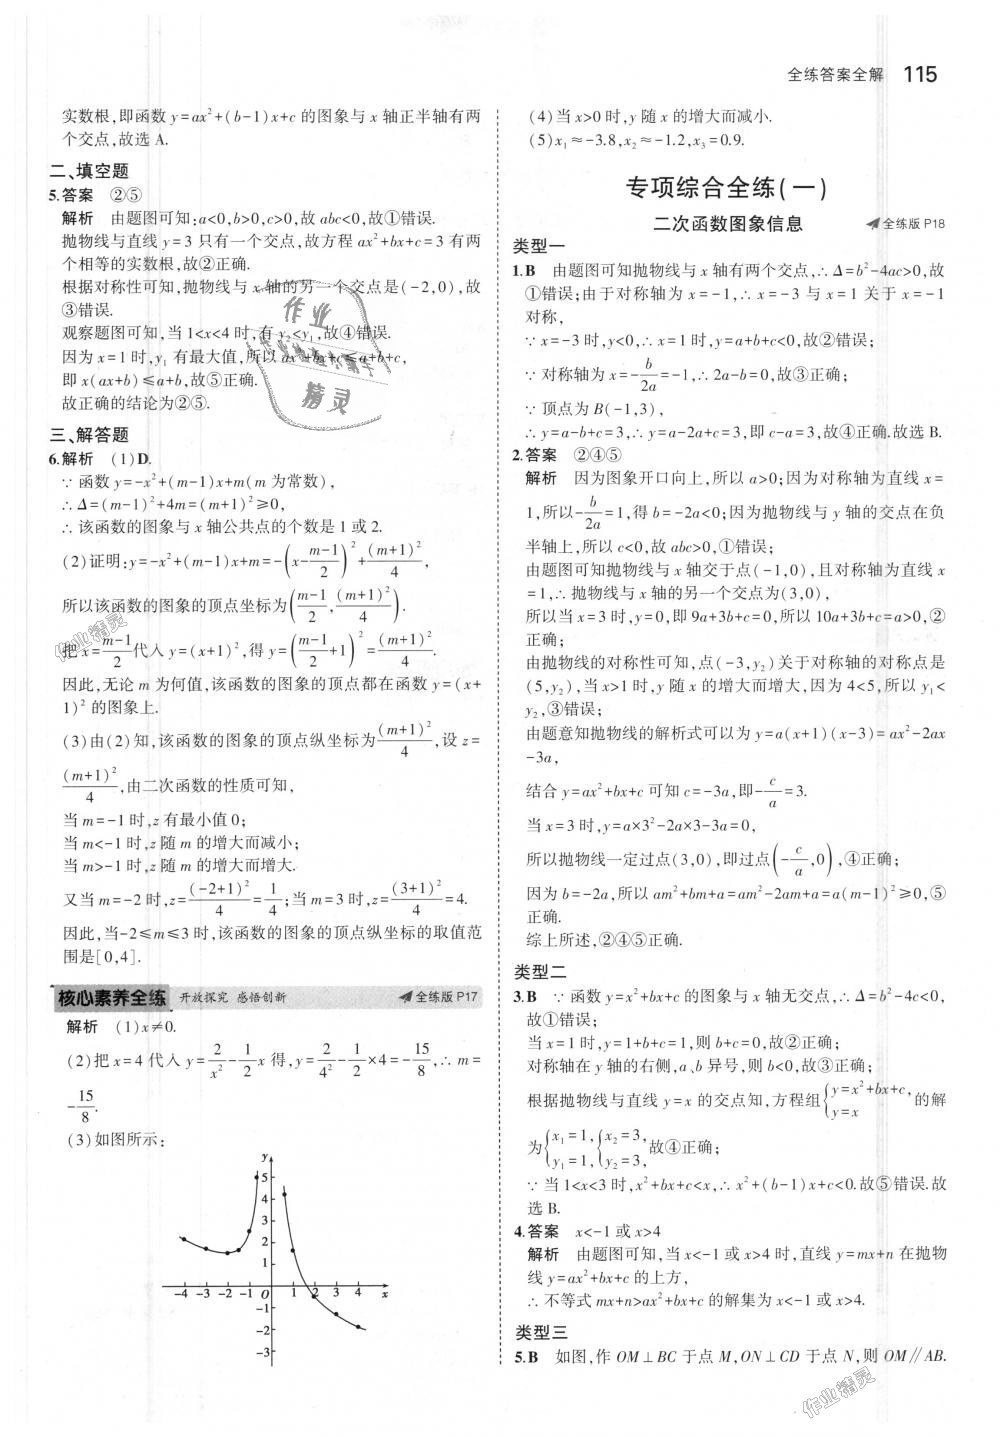 全练答案全解 115
实数根,即函数 y=ax²+(b-1)x+c 的图象与 x 轴正半轴有两
个交点,故选 A.
二、填空题
5.答案 ②⑤
解析 由题图可知:a<0,b>0,c>0,故 abc<0,故①错误.
抛物线与直线 y=3 只有一个交点,故方程 ax²+bx+c=3 有两
个相等的实数根,故②正确.
根据对称性可知,抛物线与 x 轴的另一个交点是(-2,0),故
③错误.
观察题图可知,当 1<x<4 时,有 y₂<y₁,故④错误.
因为 x=1 时,y₁ 有最大值,所以 ax²+bx+c≤a+b+c,
即 x(ax+b)≤a+b,故⑤正确.
故正确的结论为②⑤.
三、解答题
6.解析 (1)D.
∵ 函数 y=-x²+(m-1)x+m(m 为常数),
∴ Δ=(m-1)²+4m=(m+1)²≥0,
∴ 该函数的图象与 x 轴公共点的个数是 1 或 2.
(2)证明:y=-x²+(m-1)x+m=-(x-(m-1)/2)²+(m+1)²/4,
所以该函数的图象的顶点坐标为((m-1)/2,(m+1)²/4).
把 x=(m-1)/2 代入 y=(x+1)²,得 y=((m-1)/2+1)²=(m+1)²/4.
因此,无论 m 为何值,该函数的图象的顶点都在函数 y=(x+
1)² 的图象上.
(3)由(2)知,该函数的图象的顶点纵坐标为(m+1)²/4,设 z=
(m+1)²/4,由二次函数的性质可知,
当 m=-1 时,z 有最小值 0;
当 m<-1 时,z 随 m 的增大而减小;
当 m>-1 时,z 随 m 的增大而增大.
又当 m=-2 时,z=(-2+1)²/4=1/4;当 m=3 时,z=(3+1)²/4=4.
因此,当-2≤m≤3 时,该函数的图象的顶点纵坐标的取值范
围是[0,4].
核心素养全练 开放探究 感悟创新 全练版 P17
解析 (1)x≠0.
(2)把 x=4 代入 y=2/x²-1/2x 得,y=2/4²-1/2×4=-15/8,∴ m=
-15/8.
(3)如图所示:
y
5
4
3
2
1
-4 -3 -2 -1 O 1 2 3 4 x
-1
-2
-3
(4)当 x>0 时,y 随 x 的增大而减小.
(5)x₁≈-3.8,x₂≈-1.2,x₃=0.9.
专项综合全练(一)
二次函数图象信息 全练版 P18
类型一
1.B 由题图可知抛物线与 x 轴有两个交点,∴ Δ=b²-4ac>0,故
①错误;由于对称轴为 x=-1,∴ x=-3 与 x=1 关于 x=-1
对称,
∵ x=-3 时,y<0,∴ x=1 时,y=a+b+c<0,故②错误;
∵ 对称轴为 x=-b/2a=-1,∴ 2a-b=0,故③正确;
∵ 顶点为 B(-1,3),
∴ y=a-b+c=3,∴ y=a-2a+c=3,即 c-a=3,故④正确.故选 B.
2.答案 ②④⑤
解析 因为图象开口向上,所以 a>0;因为对称轴为直线 x=
1,所以-b/2a=1,得 b=-2a<0;因为抛物线与 y 轴的交点在负
半轴上,所以 c<0,故 abc>0,①错误;
由题图可知抛物线与 x 轴交于点(-1,0),且对称轴为直线 x
=1,∴ 抛物线与 x 轴的另一个交点为(3,0),
所以当 x=3 时,y=0,即 9a+3b+c=0,所以 10a+3b+c=a>0,②
正确;
由抛物线的对称性可知,点(-3,y₂)关于对称轴的对称点是
(5,y₂),当 x>1 时,y 随 x 的增大而增大,因为 4<5,所以 y₁<
y₂,③错误;
由题意知抛物线的解析式可以为 y=a(x+1)(x-3)=ax²-2ax
-3a,
结合 y=ax²+bx+c 可知 c=-3a,即-c/a=3.
当 x=3 时,y=a×3²-2a×3-3a=0,
所以抛物线一定过点(3,0),即过点(-c/a,0),④正确;
因为 b=-2a,所以 am²+bm+a=am²-2am+a=a(m-1)²≥0,⑤
正确.
综上所述,②④⑤正确.
类型二
3.B ∵ 函数 y=x²+bx+c 的图象与 x 轴无交点,∴ Δ=b²-4c<0,
故①错误;
当 x=1 时,y=1+b+c=1,则 b+c=0,故②正确;
对称轴在 y 轴的右侧,a、b 异号,则 b<0,故③正确;
根据抛物线与直线 y=x 的交点知,方程组{y=x²+bx+c, y=x 的解
为{x₁=1, y₁=1, {x₂=3, y₂=3, 故④正确;
∵ 当 1<x<3 时,x²+bx+c<x,∴ x²+(b-1)x+c<0.故⑤错误.故
选 B.
4.答案 x<-1 或 x>4
解析 由题图可知,当 x<-1 或 x>4 时,直线 y=mx+n 在抛物
线 y=ax²+bx+c 的上方,
∴ 不等式 mx+n>ax²+bx+c 的解集为 x<-1 或 x>4.
类型三
5.B 如图,作 OM⊥BC 于点 M,ON⊥CD 于点 N,则 OM∥AB.
作业精灵
作业精灵
作业
精灵